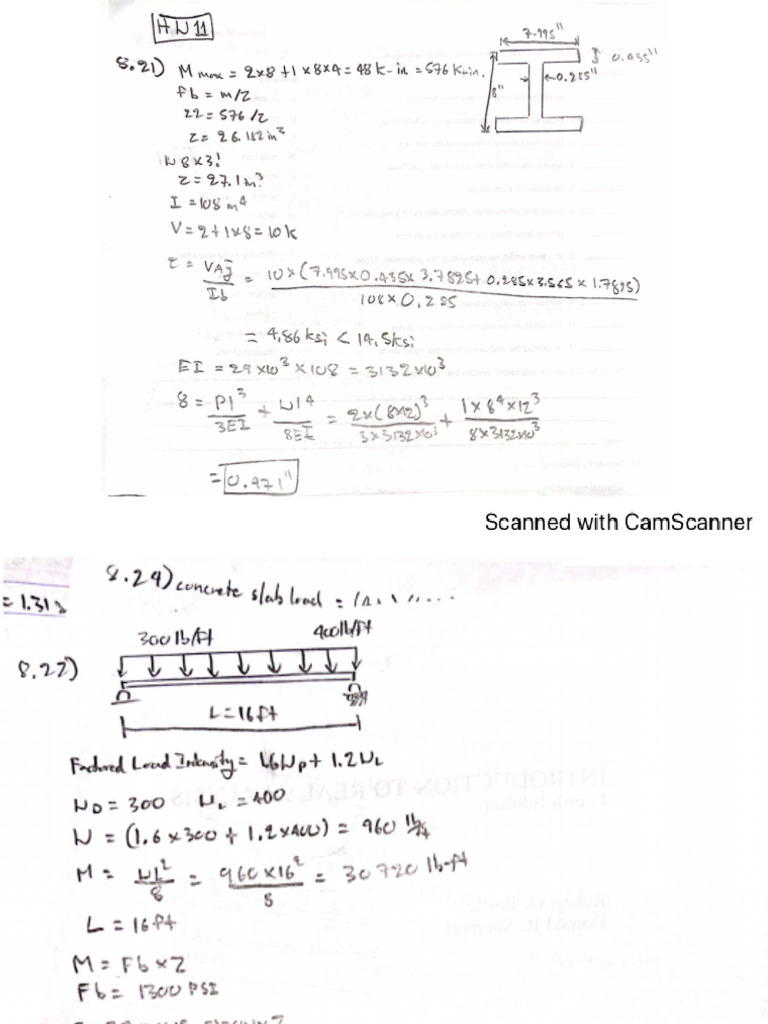 HW 11
8.21) M max = 2x8 +1 x 8x4 = 48 k-in = 576 K-in.
7.995"
0.435"
0.285"
8"
fb = M/Z
22 = 576/Z
Z = 26.182 in³
W 8x31
Z = 27.1 in³
I = 108 in⁴
V = 2+1x8 = 10k
τ = VAȳ/Ib = 10x(7.995x0.435x3.7825+0.285x3.565x1.7825)/108x0.285
= 4.86 ksi < 14.5ksi
EI = 29x10³ x 108 = 3132x10³
δ = Pl³/3EI + Wl⁴/8EI = 2x(8x12)³/3x3132x10³ + 1x8⁴x12³/8x3132x10³
= 0.471"
Scanned with CamScanner
8.24) concrete slab load =
= 1.31
300 lb/ft 400lb/ft
8.22)
L = 16ft
Factored Load Intensity = 1.6WD + 1.2WL
WD = 300 WL = 400
W = (1.6 x300 + 1.2x400) = 960 lb/ft
M = Wl²/8 = 960x16²/8 = 30720 lb-ft
L = 16ft
M = Fb x Z
Fb = 1300 PSI